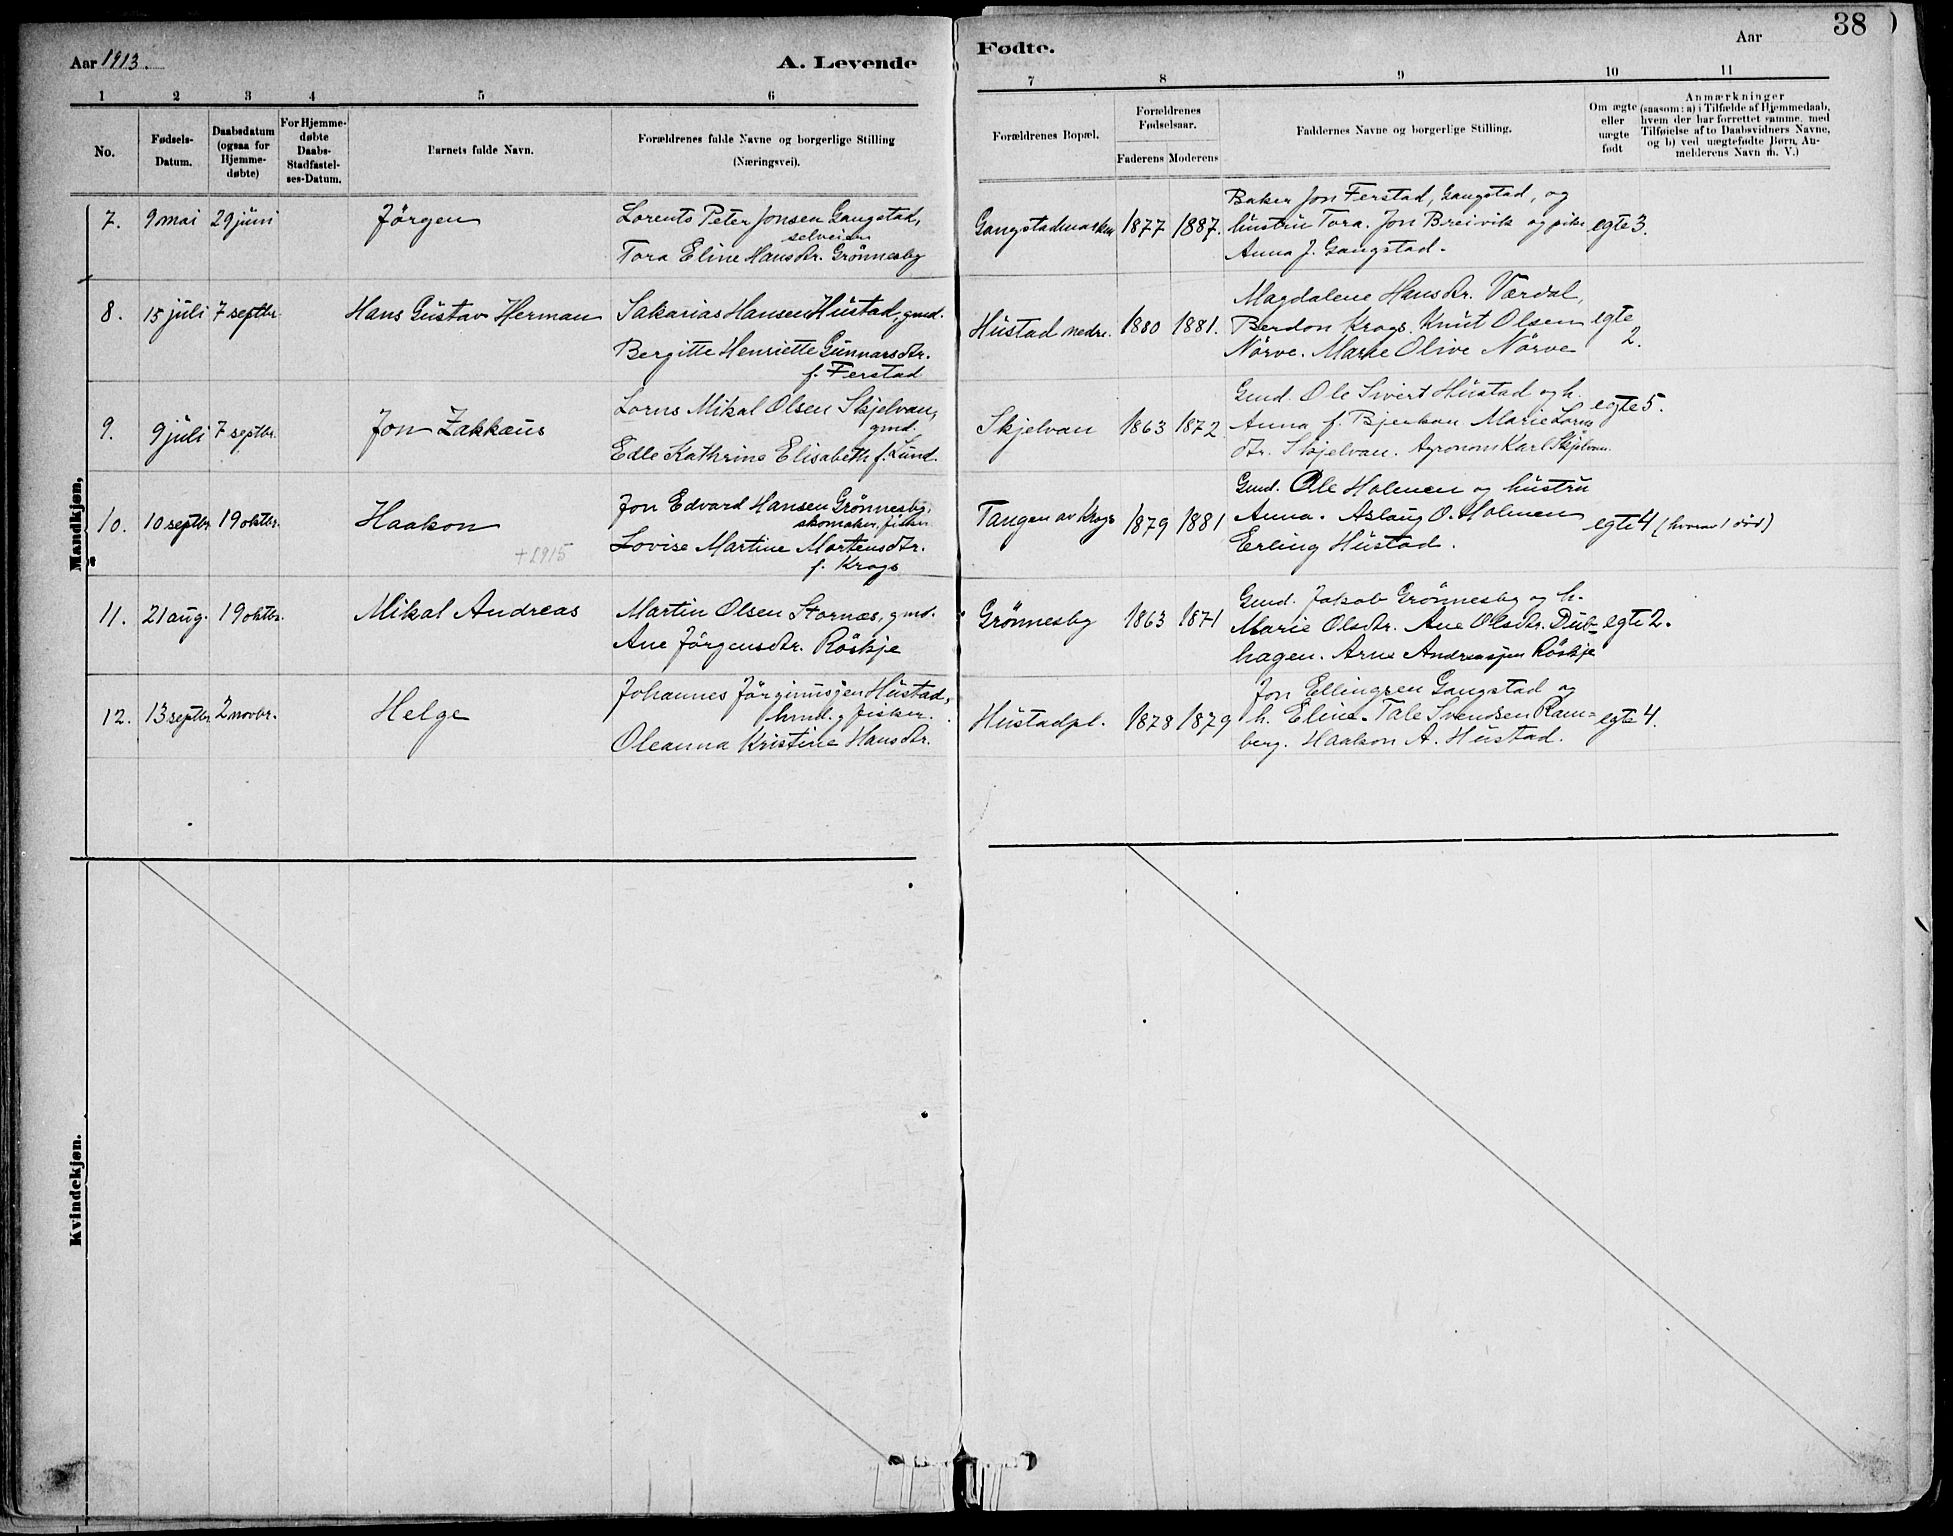 38
Aar 1913.
A. Levende
Fødte.
Aar
1 2 3 4 5 6
7 8 9 10 11
No.
Fødsels-
Datum.
Daabsdatum
(ogsaa for
Hjemme-
døbte)
For Hjemme-
døbte
Daabs-
Stadfæstel-
ses-Datum.
Barnets fulde Navn.
Forældrenes fulde Navne og borgerlige Stilling
(Næringsvei).
Forældrenes Bopæl.
Forældrenes
Fødselsaar.
Faderens Moderens
Faddernes Navne og borgerlige Stilling.
Om ægte
eller
uægte
født
Anmærkninger
(saasom: a) i Tilfælde af Hjemmedaab,
hvem der har forrettet samme, med
Tilføielse af to Daabsvidners Navne,
og b) ved uægtefødte Børn, An-
melderens Navn m. V.)
Mandkjøn,
7. 9 mai 29 juni Jörgen
Lorents Peter Jonsen Gangstad,
selveier
Tora Eline Hansdtr. Grönnesby
Gangstadmarken 1877 1887.
Baker Jon Ferstad, Gangstad, og
hustru Tora. Jon Breivik og pike
Anna J. Gangstad.
egte 3.
8. 15 juli 7 septbr. Hans Gustav Herman
Sakarias Hansen Hustad, gmd.
Bergitte Henriette Gunnarsdtr.
f. Ferstad
Hustad nedre. 1880 1881.
Magdalene Hansdtr. Værdal,
Berdon Krogs. Knut Olsen
Nörve. Marie Olive Nörve
egte
2.
9. 9 juli 7 septbr. Jon Zakkæus
Lorns Mikal Olsen Skjelvan,
gmd.
Edle Kathrine Elisabeth f. Lund.
Skjelvan 1863 1872.
Gmd. Ole Sivert Hustad og h.
Anna f. Bjerkan Marie Lorns
dtr. Skjelvan. Agronom Karl Skjelvan.
egte 5.
10. 10 septbr 19 oktbr. Haakon
+ 1915
Jon Edvard Hansen Grönnesby,
skomaker, fisker
Lovise Martine Martensdtr.
f. Krogs
Tangen av Krogs 1879 1881
Gmd. Ole Holmen og hustru
Anna. Aslaug O. Holmen
Erling Hustad.
egte 4 (hvorav 1 död)
11. 21 aug. 19 oktbr. Mikal Andreas
Martin Olsen Stornæs, gmd.
Ane Jörgensdtr. Röskje
Grönnesby 1863 1871
Gmd. Jakob Grönnesby og h.
Marie Olsdtr. Ane Olsdtr. Dub-
hagen. Arne Andreassen Röskje
egte 2.
12. 13 septbr 2 novbr. Helge
Johannes Jörginussen Hustad,
hmd. g fisker.
Oleanna Kristine Hansdtr.
Hustadpl. 1878 1879
Jon Ellingsen Gangstad og
h. Eline. Tale Svendsen Ram-
berg. Haakon A. Hustad.
egte 4.
Kvindekjøn.